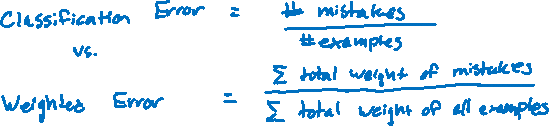 Classification Error = # mistakes
#examples
vs.
Weighted Error = Σ total weight of mistakes
Σ total weight of all examples